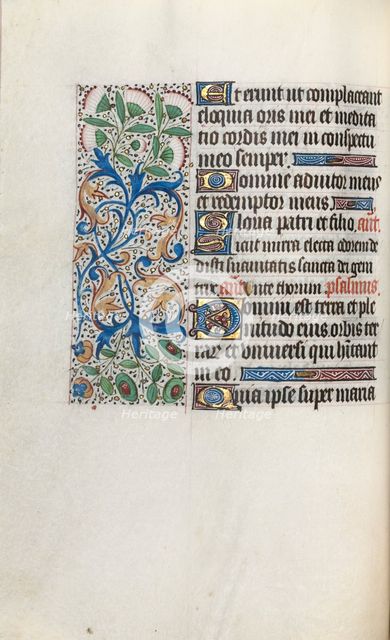 Et erunt ut complaceant
eloquia oris mei et medita
tio cordis mei in conspectu
meo semper.
Domine adiutor meus
et redemptor meus.
Gloria patri et filio. añ.
Sicut mirra electa odorem de
disti suauitatis sancta dei geni
trix añ. Ante thorum psalmus.
Domini est terra et ple
nitudo eius orbis ter
rar et vniuersi qui hitant
in eo.
Quia ipse super maria
heritage
Heritage
Heritage